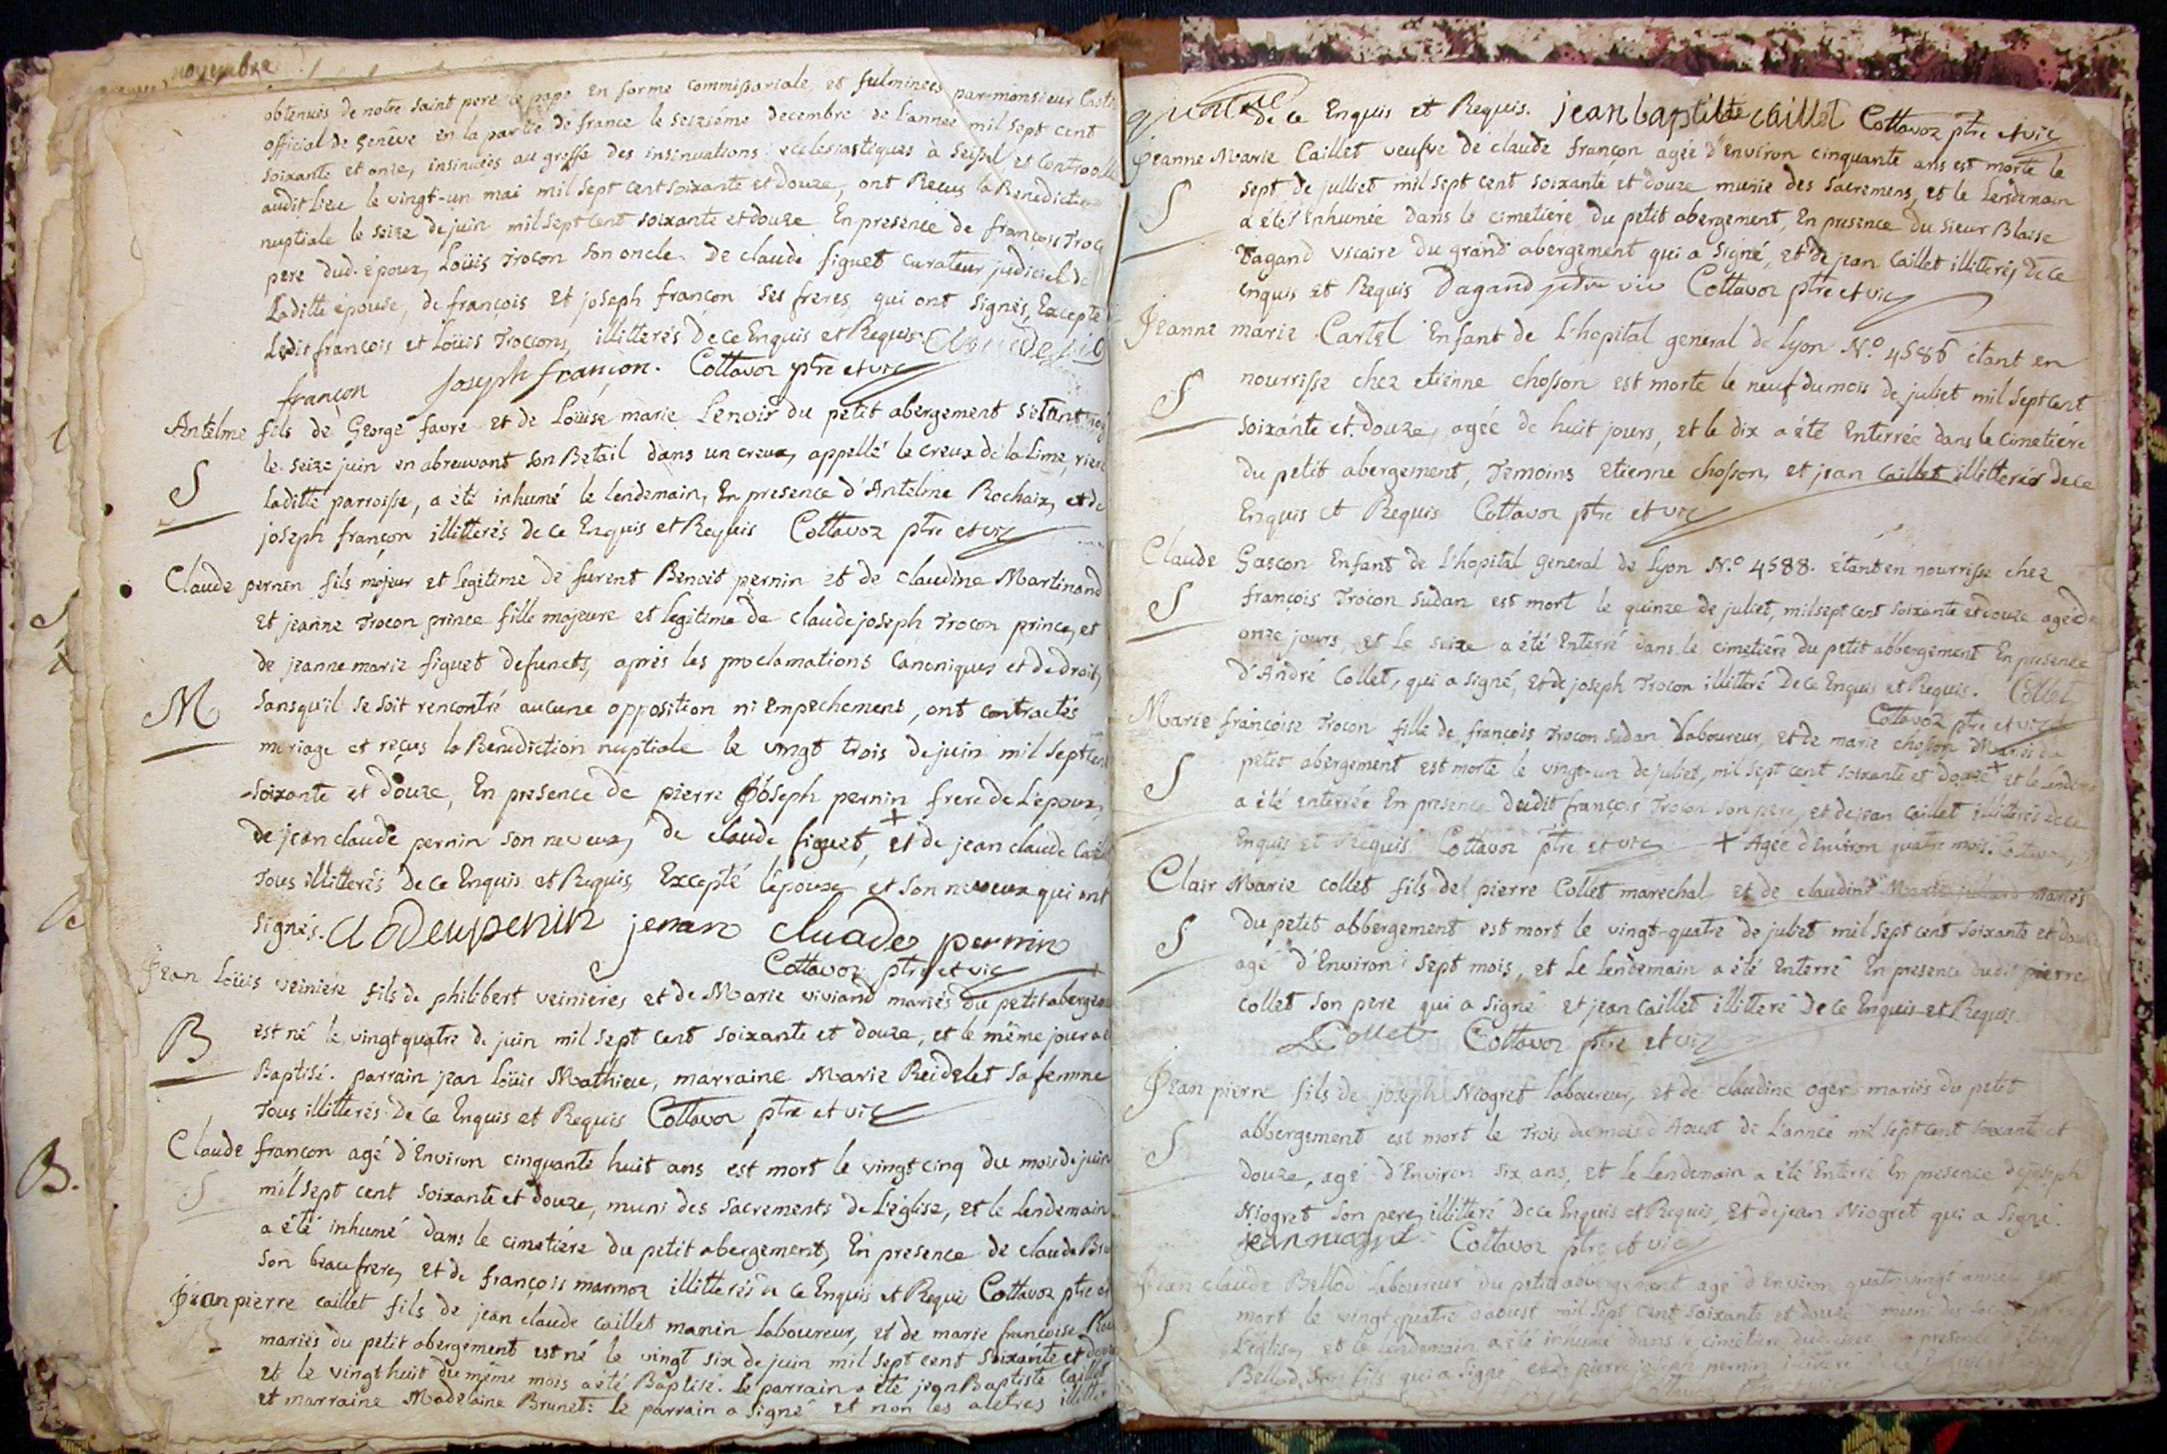 novembre
obtenues de notre saint pere le pape en forme commissoriale, et fulminées par monsieur
official de Genêve en la partie de france le seizième decembre de l'année mil sept cent
soixante et onze, insinuées au greffe des insinuations ecclesiastiques à Seissel et
audit lieu le vingt-un mai mil sept cent soixante et douze, ont Reçus la Benediction
nuptiale le seize de juin mil sept cent soixante et douze En presence de françois
pere dud. époux, Loüis Trocon son oncle. De claude figuet curateur judiciel de
Laditte épouse, de françois et joseph françon ses freres, qui ont signés, Excepté
Ledit françois et Loüis Troccons, illitterés de ce Enquis et Requis.
françon joseph françon. Cottavoz ptre et vic
Antelme fils de George favre et de Loüise marie Lenoir du petit abergement s'étant
le seize juin en abreuvant son Betail dans un creux, appellé le creux de la Lime, riere
S
laditte parroisse, a été inhumé le lendemain, En presence d'Antelme Rochaix, et de
joseph françon illitterés de ce Enquis et Requis Cottavoz ptre et vic
Claude pernin fils majeur et legitime de furent Benoit pernin et de claudine Martinand
et jeanne Trocon prince fille majeure et legitime de claude joseph Trocon prince, et
de jeanne marie figuet defuncts, après les proclamations Canoniques et de droit,
M
sans qu'il se soit rencontré aucune opposition ni empechement, ont contractés
mariage et reçus la Benediction nuptiale le vingt trois de juin mil sept cent
soixante et douze, En presence de pierre joseph pernin frere de L'epoux,
de jean claude pernin son neveux, de claude figuet, + et de jean claude
Tous illitterés de ce Enquis et Requis, Excepté l'époux et son neveux qui ont
signés. jenan cluade pernin
Cottavoz ptre et vic
Jean Loüis veiniére fils de philibert veinieres et de Marie viviand mariés du petit
B
est né le vingt quatre de juin mil sept cent soixante et douze, et le même jour
Baptisé. parrain jean Loüis Mathieu, marraine Marie Reidelet sa femme
Tous illitterés de ce Enquis et Requis Cottavoz ptre et vic
B.
Claude françon agé d'Environ cinquante huit ans est mort le vingt cinq du mois de juin
S
mil sept cent soixante et douze, muni des sacrements de L'église, et le Lendemain
a été inhumé dans le cimetière du petit abergement, En presence de claude
son beaufrere, et de françois marmoz illitterés de ce Enquis et Requis Cottavoz ptre et
Jean pierre caillet fils de jean claude caillet manin Laboureur, et de marie françoise
mariés du petit abergement est né le vingt six de juin mil sept cent soixante et
et le vingt huit du même mois a été Baptisé. Le parrain a été jean Baptiste Caillet
et marraine Madelaine Brunet: le parrain a signé et non les autres
de ce Enquis et Requis. jean baptiste caillet Cottavoz ptre et vic
Jeanne Marie Caillet veufve de claude françon agée d'environ cinquante ans est morte le
S
sept de julliet mil sept cent soixante et douze munie des sacremens, et le Lendemain
a été Inhumée dans le cimetiére du petit abergement, En presence du sieur Blaise
Dagand vicaire du grand abergement qui a signé, et de jean Caillet illitteré, De ce
enquis et Requis Dagand vic Cottavoz ptre et vic
Jeanne marie Cartel Enfant de L'hopital general de Lyon N.º 4586 étant en
S
nourrisse chez etienne chosson est morte le neuf du mois de juliet mil sept cent
soixante et douze, agée de huit jours, et le dix a été Enterrée dans le cimetiére
du petit abergement, Temoins etienne chosson, et jean caillet illitterés de ce
Enquis et Requis Cottavoz ptre et vic
Claude Gascon Enfant de l'hopital General de Lyon N.º 4588. étant en nourrisse chez
S
françois Trocon Sudan est mort le quinze de juliet, mil sept cent soixante et douze agé de
onze jours, et le seize a été Enterré dans le cimetiére du petit abbergement En presence
d'André Collet, qui a signé, Et de joseph Trocon illitteré De ce Enquis et Requis. Collet
Cottavoz ptre et vic
Marie françoise Trocon fille de françois Trocon Sudan Laboureur, et de marie chosson Mariés du
S
petit abergement est morte le vingt-un de juliet, mil sept cent soixante et douze + et le
a été enterrée En presence dudit françois Trocon son pere, et de jean Caillet illitterés de ce
Enquis et Requis Cottavoz ptre et vic + Agée d'Environ quatre mois. Cottavoz
Clair Marie collet fils de pierre Collet marechal et de claudine Marie mariés
S
du petit abbergement est mort le vingt-quatre de juliet mil sept cent soixante et douze
agé d'Environ sept mois, et Le Lendemain a été Enterré En presence dudit pierre
collet son pere qui a signé et jean Caillet illitteré De ce Enquis et Requis
Collet Cottavoz ptre et vic
Jean pierre fils de joseph Niogret laboureur, et de claudine oger mariés du petit
S
abbergement est mort le Trois du mois d'Aoust de L'année mil sept cent soixante et
douze, agé d'Environ six ans, et le Lendemain a été Enterré En presence de joseph
Niogret son pere, illitteré De ce Enquis et Requis, Et de jean Niogret qui a signé.
Cottavoz ptre et vic
Jean claude Bellod Laboureur du petit abbergement agé d'Environ quatre vingt années est
S
mort le vingt quatre d'aoust mil sept cent soixante et douze muni des
L'église, et le lendemain a été inhumé dans le cimetière dudit lieu En presence
Bellod, son fils qui a signé et de pierre joseph pernin